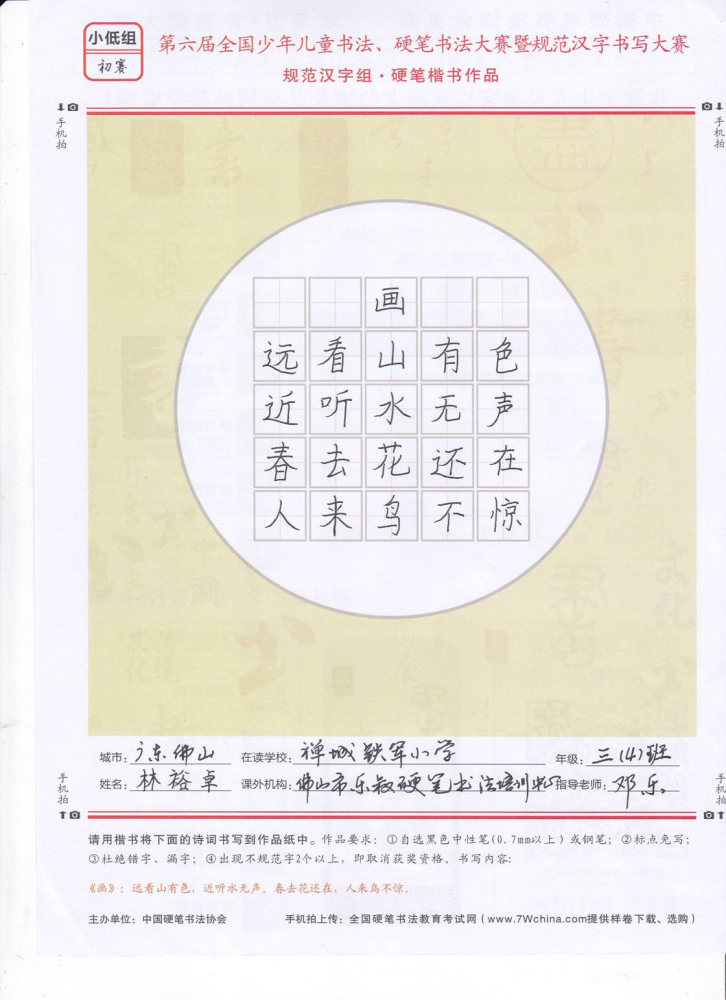 小低组
初赛
第六届全国少年儿童书法、硬笔书法大赛暨规范汉字书写大赛
规范汉字组·硬笔楷书作品
手机拍
手机拍
画
远看山有色
近听水无声
春去花还在
人来鸟不惊
城市：广东佛山 在读学校：禅城铁军小学 年级：三(4)班
姓名：林裕卓 课外机构：佛山市乐毅硬笔书法培训中心 指导老师：邓乐
手机拍
手机拍
请用楷书将下面的诗词书写到作品纸中。作品要求：①自选黑色中性笔(0.7mm以上)或钢笔；②标点免写；
③杜绝错字、漏字；④出现不规范字2个以上，即取消获奖资格。书写内容：
《画》：远看山有色，近听水无声。春去花还在，人来鸟不惊。
主办单位：中国硬笔书法协会 手机拍上传：全国硬笔书法教育考试网（www.7Wchina.com提供样卷下载、选购）